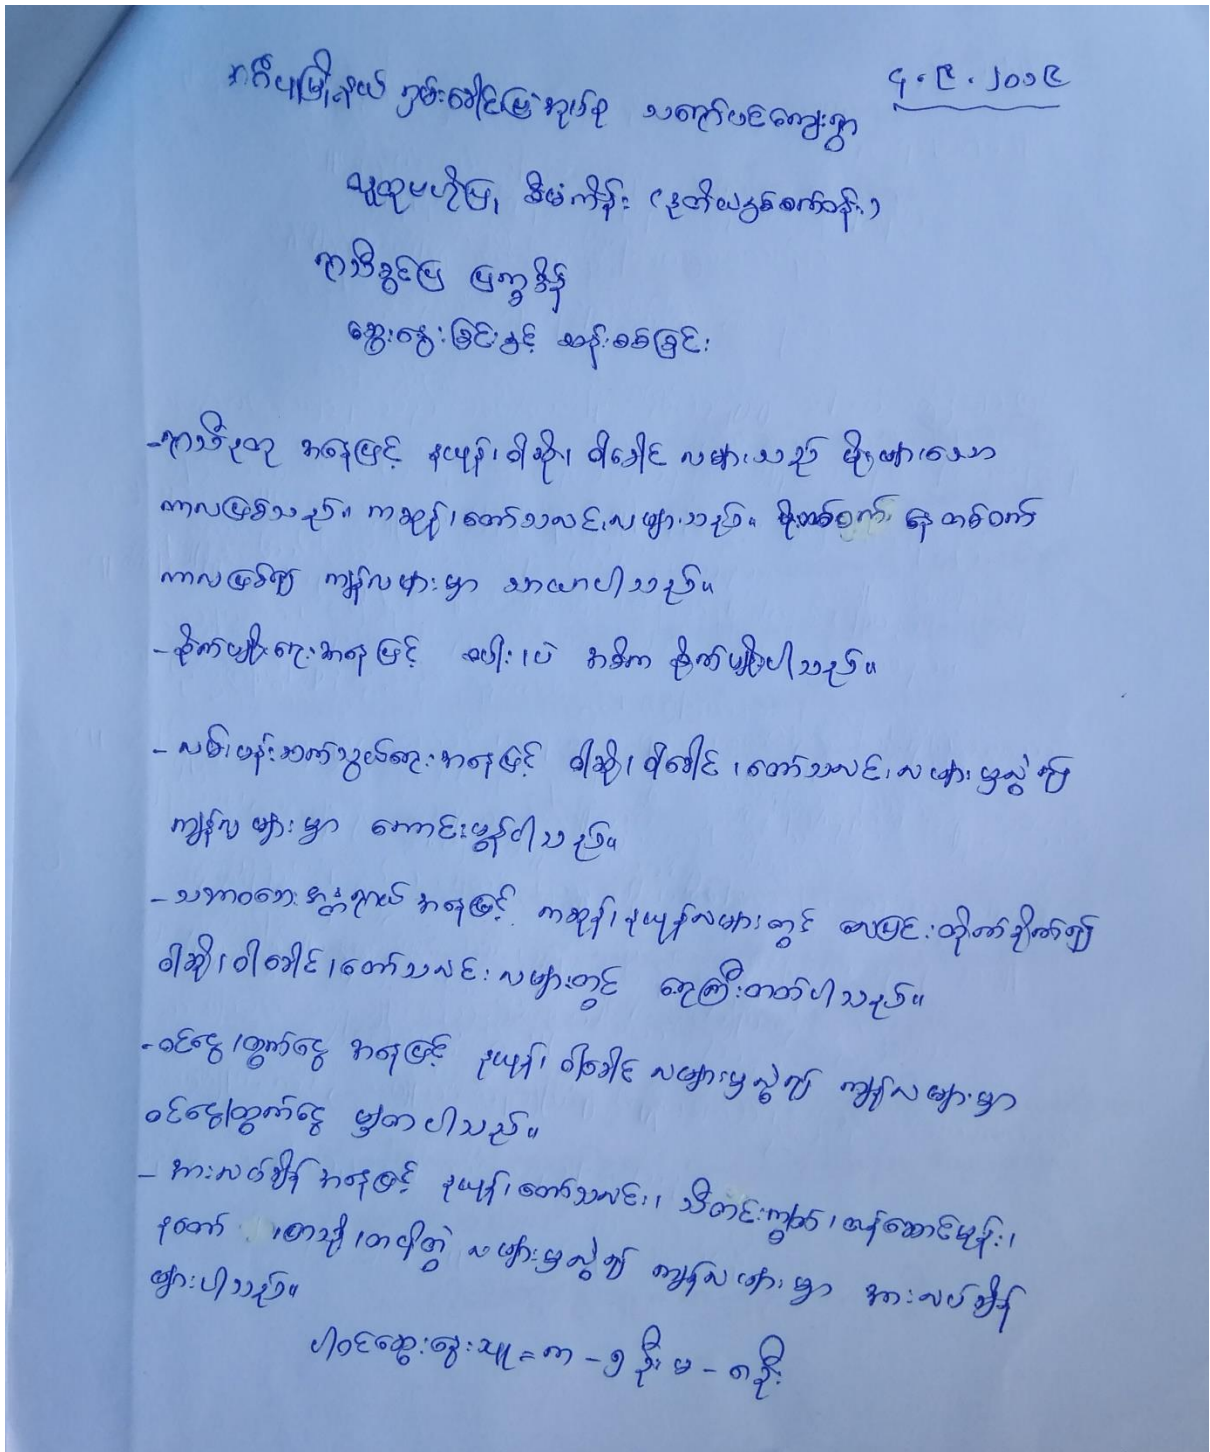 ၄.၉.၂၀၁၉
အင်္ဂပုမြို့နယ် ဌမ်းခေါင်မြဲအုပ်စု သရော်ပင်ကျေးရွာ
လူထုဗဟိုပြု စီမံကိန်း (ဒုတိယနှစ်စက်ဝန်း)
ရာသီခွင်ပြ ပြက္ခဒိန်
ဆွေးနွေးခြင်းနှင့် ဆန်းစစ်ခြင်း
-ရာသီဥတု အနေဖြင့် နယုန်၊ ဝါဆို၊ ဝါခေါင် လများသည် မိုးများသော
ကာလဖြစ်သည်။ ကဆုန်၊ တော်သလင်းလများသည်။ မိုးတစ်ဝက် နေတစ်ဝက်
ကာလဖြစ်၍ ကျန်လများမှာ သာယာပါသည်။
-စိုက်ပျိုးရေးအနေဖြင့် စပါး၊ ပဲ အဓိက စိုက်ပျိုးပါသည်။
- လမ်းပန်းဆက်သွယ်ရေးအနေဖြင့် ဝါဆို၊ ဝါခေါင်၊ တော်သလင်းလများမှလွဲ၍
ကျန်လများမှာ ကောင်းမွန်ပါသည်။
- သဘာဝဘေးအန္တရာယ် အနေဖြင့် ကဆုန်၊ နယုန်လများတွင် လေပြင်းတိုက်ခိုက်၍
ဝါဆို၊ ဝါခေါင်၊ တော်သလင်း လများတွင် ရေကြီးတတ်ပါသည်။
-ဝင်ငွေ၊ ထွက်ငွေ အနေဖြင့် နယုန်၊ ဝါခေါင် လများမှလွဲ၍ ကျန်လများမှာ
ဝင်ငွေ၊ ထွက်ငွေ မျှတပါသည်။
- အားလပ်ချိန် အနေဖြင့် နယုန်၊ တော်သလင်း၊ သီတင်းကျွတ်၊ တန်ဆောင်မုန်း၊
နတော် ၊ ပြာသို၊ တပို့တွဲ လများမှလွဲ၍ ကျန်လများမှာ အားလပ်ချိန်
များပါသည်။
ပါဝင်ဆွေးနွေးသူ = ကာ - ၅ ဦး မ - ၈ ဦး